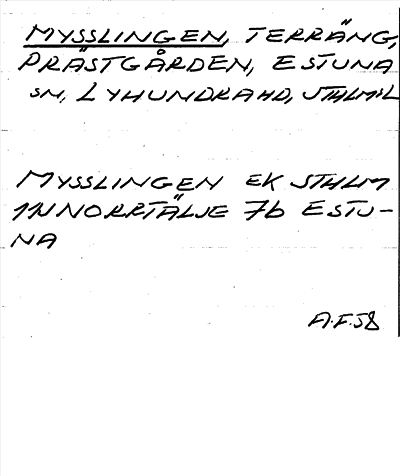 MYSSLINGEN, TERRÄNG,
PRÄSTGÅRDEN, ESTUNA
SN, LYHUNDRA HD, STHLMS L
MYSSLINGEN EK STHLM
11NNORRTÄLJE 7b ESTU-
NA
A.F.58